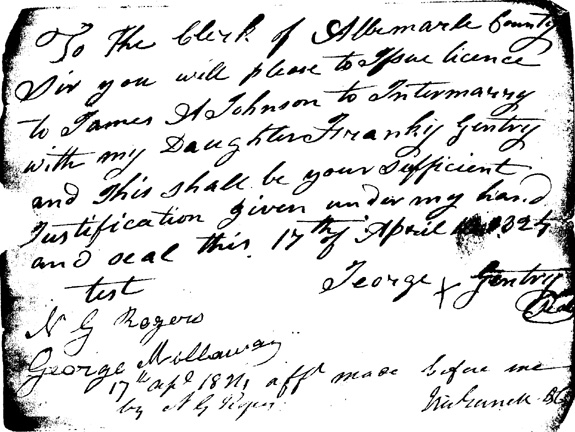 To the Clerk of Albemarle County
Sir you will please to Issue licence
to James A Johnson to Intermarry
with my Daughter Franky Gentry
and this shall be your Sufficient
Justification given under my hand
and seal this 17th of April 1824
George X Gentry
Seal
test
N G Rogers
George Mollaway
17th apl 1824 afft made before me
by N G Rogers